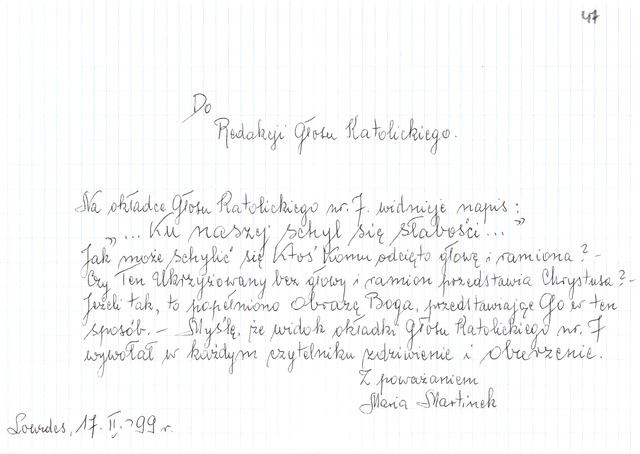 47
Do
Redakcji Głosu Katolickiego.
Na okładce Głosu Katolickiego nr. 7. widnieje napis:
"... Ku naszej schyl się słabości..."
Jak może schylić się Ktoś Komu odcięto głowę i ramiona? -
Czy Ten Ukrzyżowany bez głowy i ramion przedstawia Chrystusa? -
Jeżeli tak, to popełniono Obrazę Boga, przedstawiając Go w ten
sposób. - Myślę, że widok okładki Głosu Katolickiego nr. 7
wywołał w każdym czytelniku zdziwienie i oburzenie.
Z poważaniem
Maria Martinek
Lourdes, 17. II. 99 r.